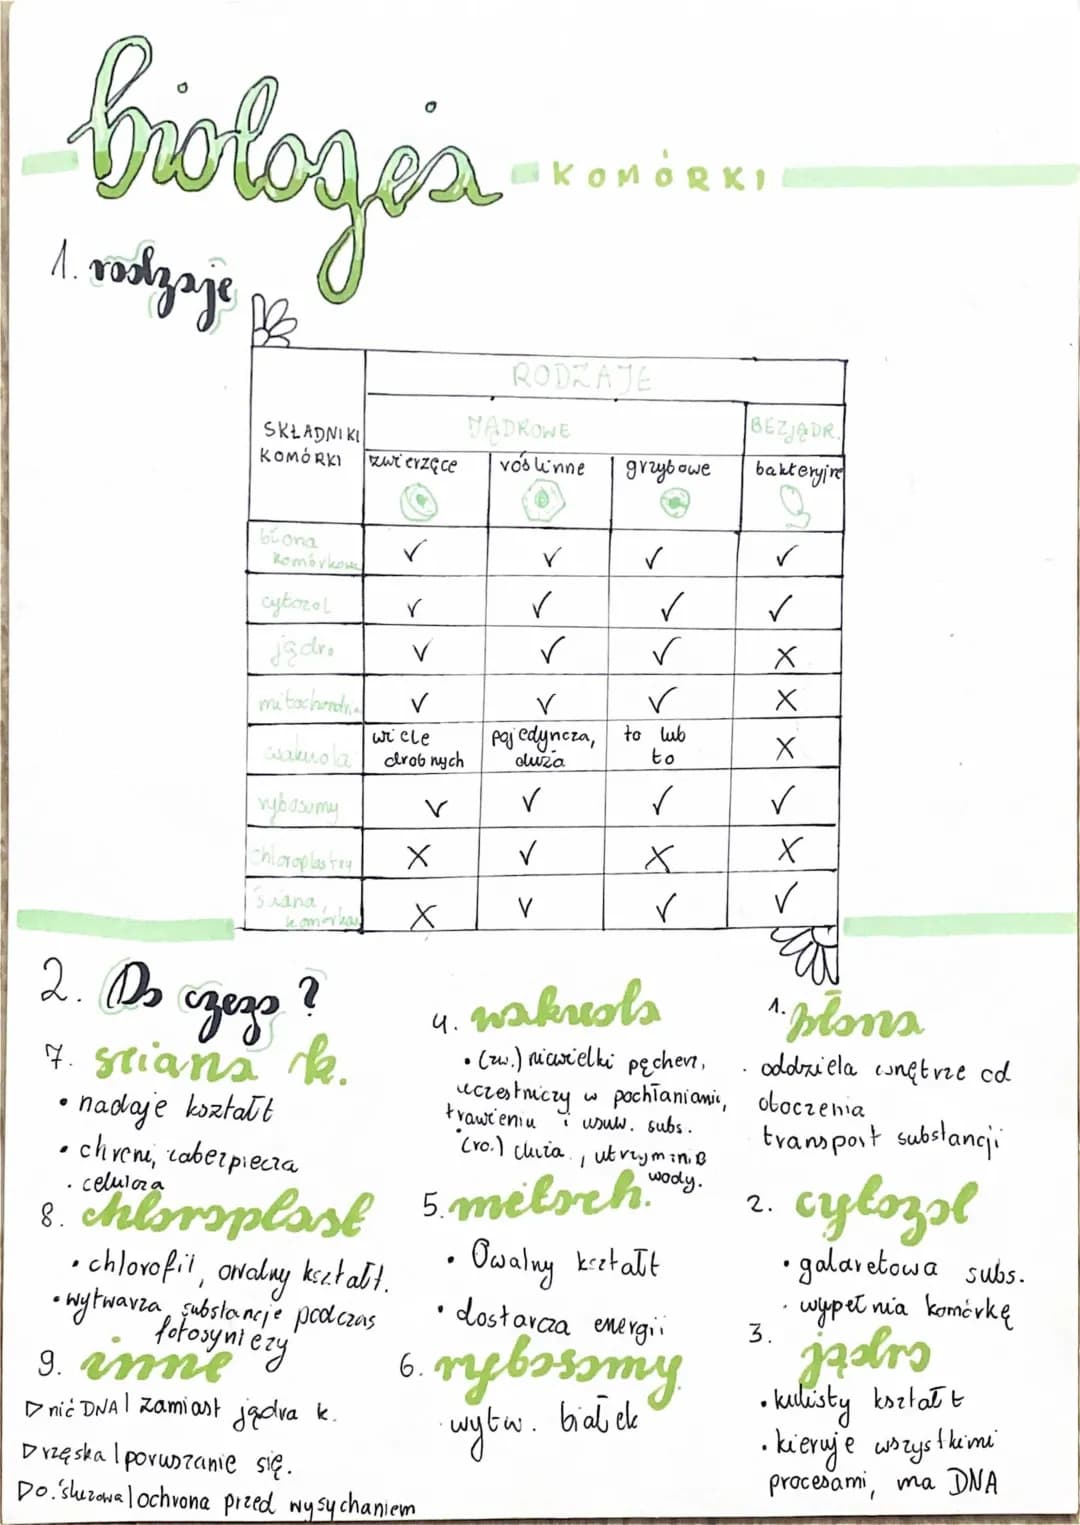 biologia
KOMÓRKI
1. rodzaje
RODZAJE
SKŁADNIKI KOMÓRKI
JĄDROWE
BEZJĄDR.
zwierzęce
roślinne
grzybowe
bakteryjne
błona komórkowa ✓ ✓ ✓ ✓
cytozol ✓ ✓ ✓ ✓
jądro ✓ ✓ ✓ X
mitochondria ✓ ✓ ✓ X
wakuola wiele drobnych pojedyncza, duża to lub to X
rybosomy ✓ ✓ ✓ ✓
chloroplasty X ✓ X X
ściana komórkowa X ✓ ✓ ✓
2. Do czego?
7. ściana k.
• nadaje kształt
• chroni, zabezpiecza
• celuloza
8. chloroplast
• chlorofil, owalny kształt.
• wytwarza substancje podczas
fotosyntezy
9. inne
▷ nić DNA | zamiast jądra k.
▷ rzęska | poruszanie się.
▷ o. śluzowa | ochrona przed wysychaniem
4. wakuola
• (zw.) niewielki pęcherz,
uczestniczy w pochłanianiu,
trawieniu i usuw. subs.
• (ro.) duża, utrzym.
wody.
5. mitoch.
• Owalny kształt
• dostarcza energii
6. rybosomy
• wytw. białek
1. błona
• oddziela wnętrze od
otoczenia
transport substancji
2. cytozol
• galaretowa subs.
• wypełnia komórkę
3. jądro
• kulisty kształt
• kieruje wszystkimi
procesami, ma DNA